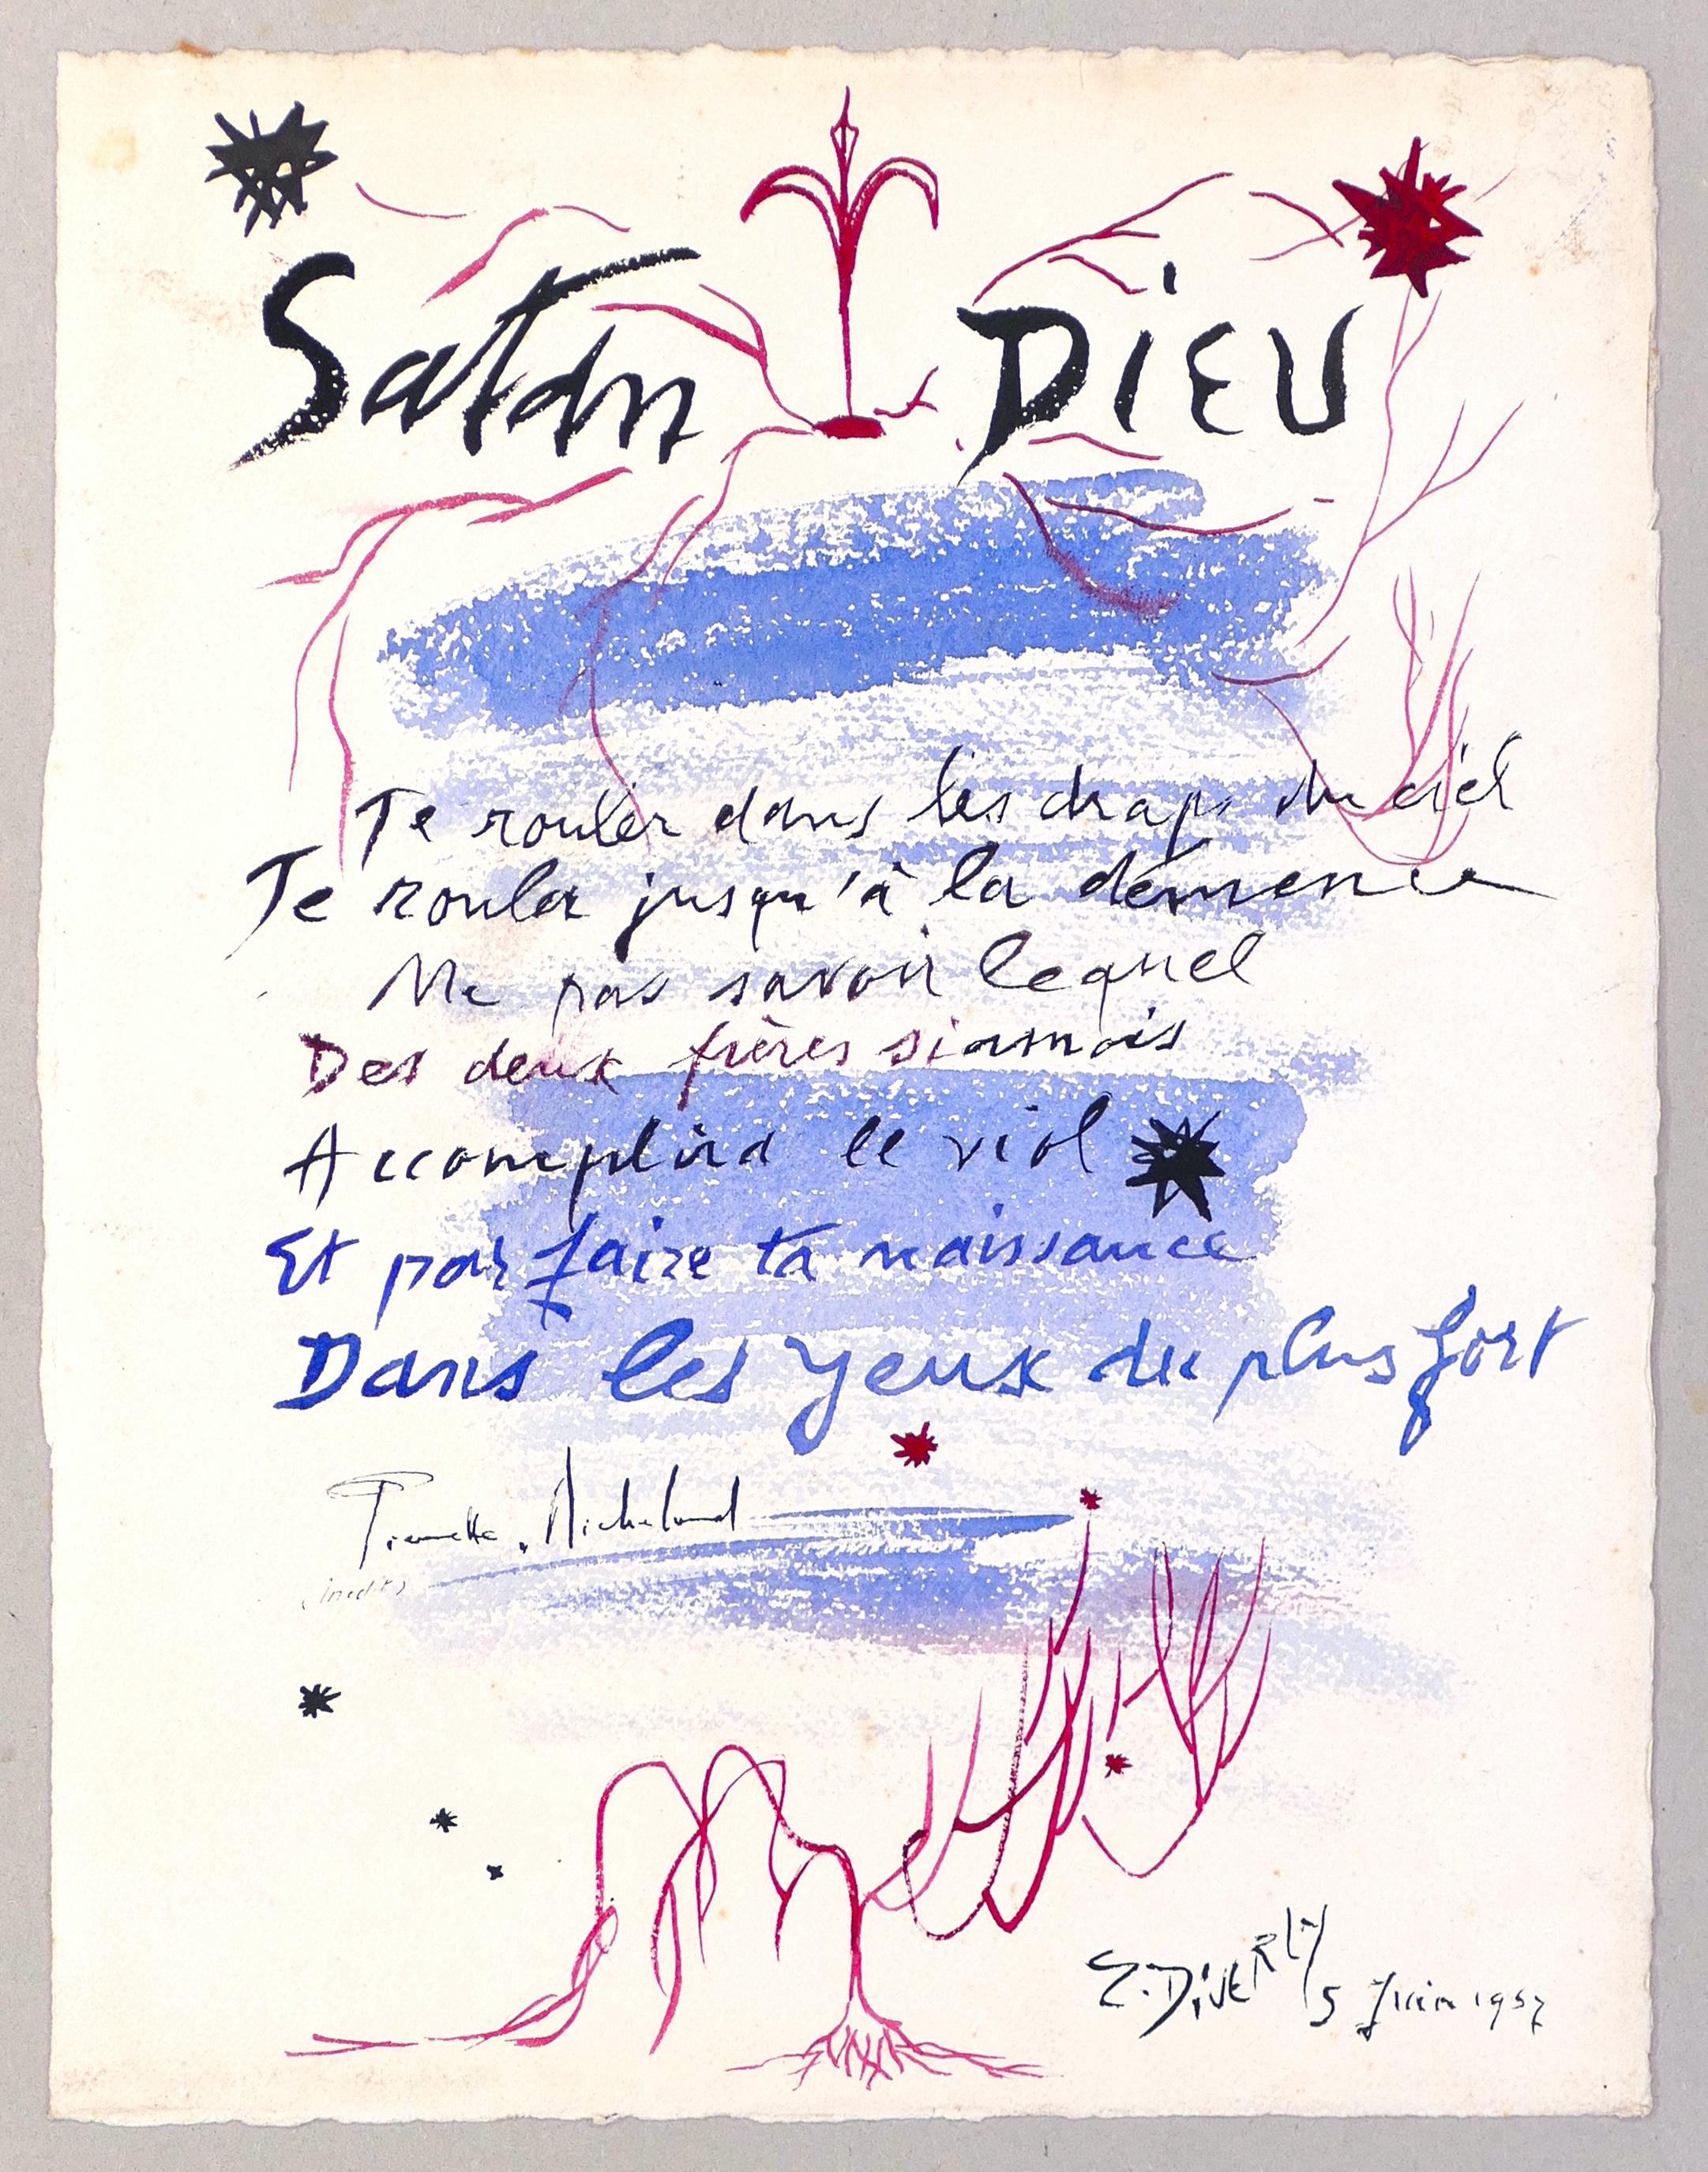 Satan Dieu
Te rouler dans les draps du ciel
Te rouler jusqu'à la démence
Ne pas savoir lequel
Des deux frères siamois
Accomplira le viol
Et par faire ta naissance
Dans les yeux du plus fort
Pierrette. Micheloud
(inédit)
E. Diverly 5 Juin 1957